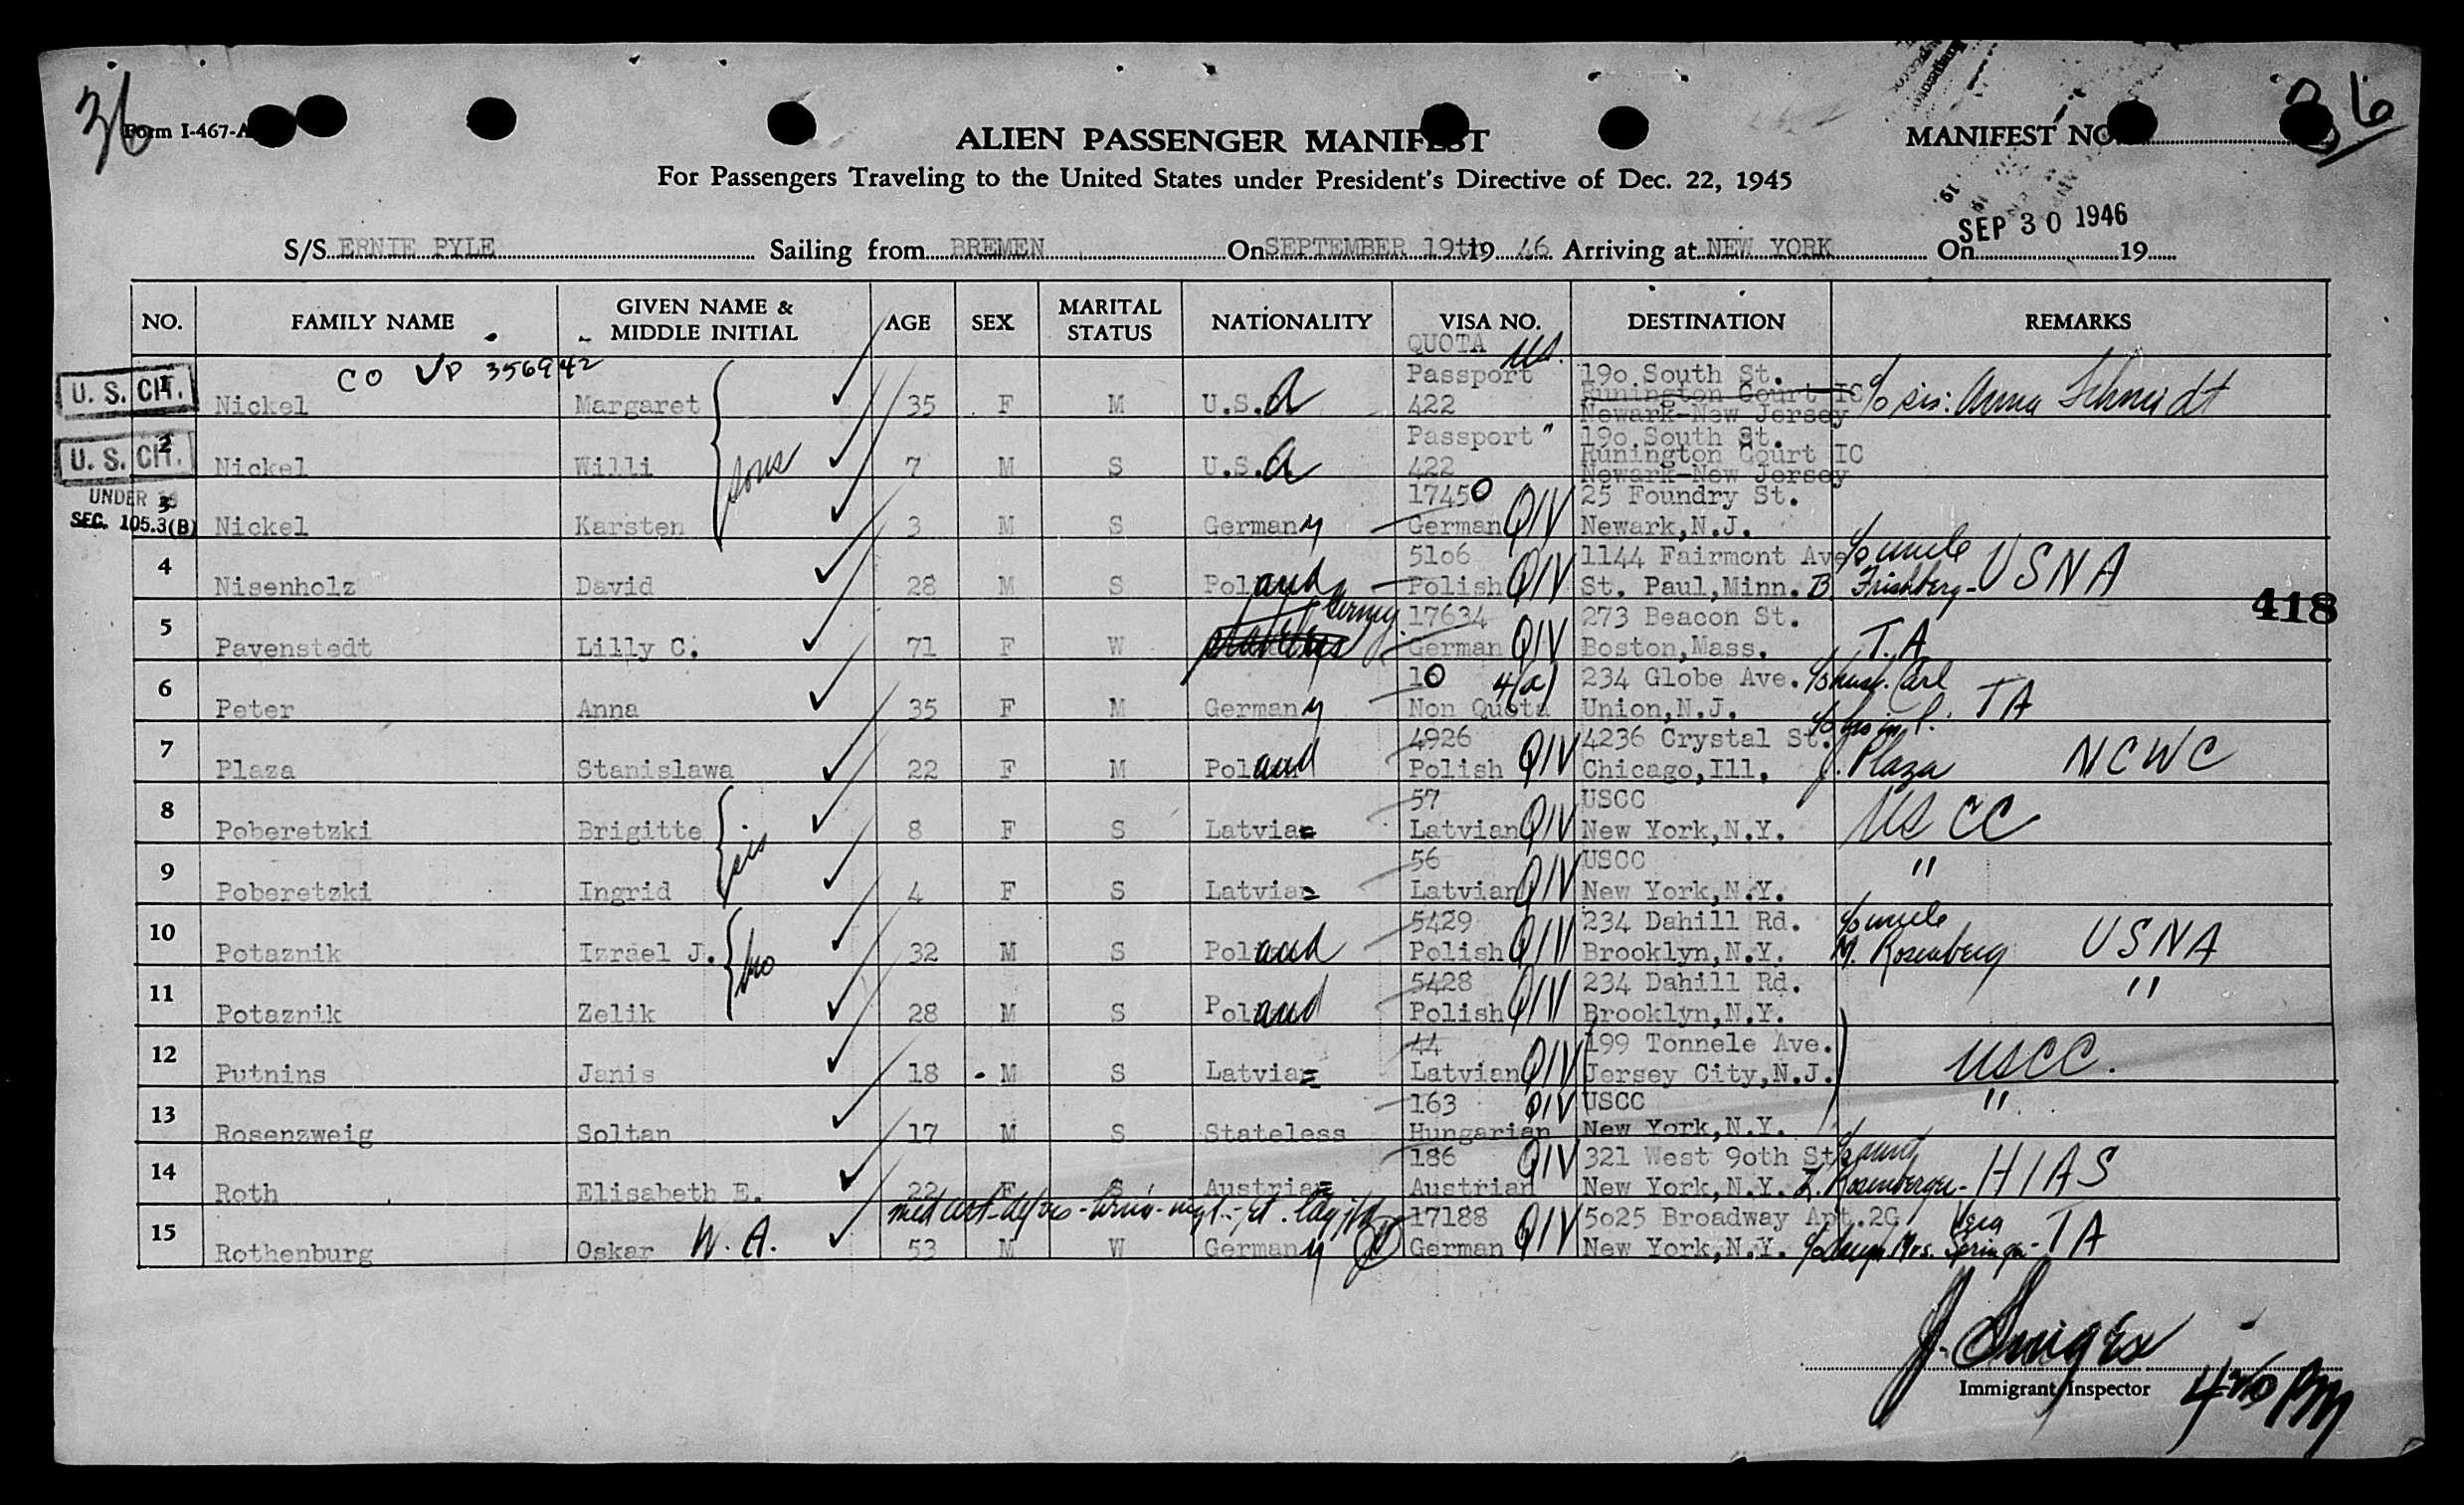 36
36
Form I-467-A
ALIEN PASSENGER MANIFEST
MANIFEST NO.
For Passengers Traveling to the United States under President's Directive of Dec. 22, 1945
SEP 30 1946
S/S ERNIE PYLE Sailing from BREMEN On SEPTEMBER 19th 19 46 Arriving at NEW YORK On 19
NO. FAMILY NAME GIVEN NAME & MIDDLE INITIAL AGE SEX MARITAL STATUS NATIONALITY VISA NO. DESTINATION REMARKS
QUOTA U.S.
CO VP 356942
U. S. CIT. 1 Nickel Margaret 35 F M U.S.A Passport 422 190 South St. Runington Court IC Newark-New Jersey c/o sis: Anna Schmidt
U. S. CIT. 2 Nickel Willi sons 7 M S U.S.A Passport " 422 190 South St. Runington Court IC Newark-New Jersey
UNDER 16 SEC. 105.3(B) 3 Nickel Karsten 3 M S Germany 17450 German QIV 25 Foundry St. Newark,N.J.
4 Nisenholz David 28 M S Poland 5106 Polish QIV 1144 Fairmont Ave St. Paul,Minn. c/o uncle B. Frishberg - USNA
418
5 Pavenstedt Lilly C. 71 F W Germany 17634 German QIV 273 Beacon St. Boston,Mass. T.A
6 Peter Anna 35 F M Germany 10 4(a) Non Quota 234 Globe Ave. Union,N.J. c/o husb. Carl TA
7 Plaza Stanislawa 22 F M Poland 4926 Polish QIV 4236 Crystal St. Chicago,Ill. c/o bro in l. J. Plaza NCWC
8 Poberetzki Brigitte sis 8 F S Latvia 57 Latvian QIV USCC New York,N.Y. USCC
9 Poberetzki Ingrid 4 F S Latvia 56 Latvian QIV USCC New York,N.Y. "
10 Potaznik Izrael J. bro 32 M S Poland 5429 Polish QIV 234 Dahill Rd. Brooklyn,N.Y. c/o uncle M. Rosenberg USNA
11 Potaznik Zelik 28 M S Poland 5428 Polish QIV 234 Dahill Rd. Brooklyn,N.Y. "
12 Putnins Janis 18 M S Latvia 44 Latvian QIV 199 Tonnele Ave. Jersey City,N.J. USCC.
13 Rosenzweig Soltan 17 M S Stateless 163 Hungarian QIV USCC New York,N.Y. "
14 Roth Elisabeth E. 22 F S Austria 186 Austrian QIV 321 West 90th St New York,N.Y. c/o aunt L. Rosenberger - HIAS
med cert
15 Rothenburg Oskar W. A. 53 M W Germany 17188 German QIV 5025 Broadway Apt.2G New York,N.Y. c/o daugh Mrs. Vera Springer - TA
Immigrant Inspector
420 PM